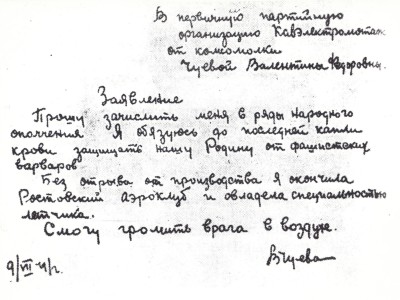 В первичную партийную
организацию Кавэлектромонтаж
от комсомолки
Чуевой Валентины Федоровны.
Заявление
Прошу зачислить меня в ряды народного
ополчения Я обязуюсь до последней капли
крови защищать нашу Родину от фашистских
варваров
Без отрыва от производства я окончила
Ростовский Аэроклуб и овладела специальностью
летчика.
Смогу громить врага в воздухе.
9/VII 41г. ВЧуева